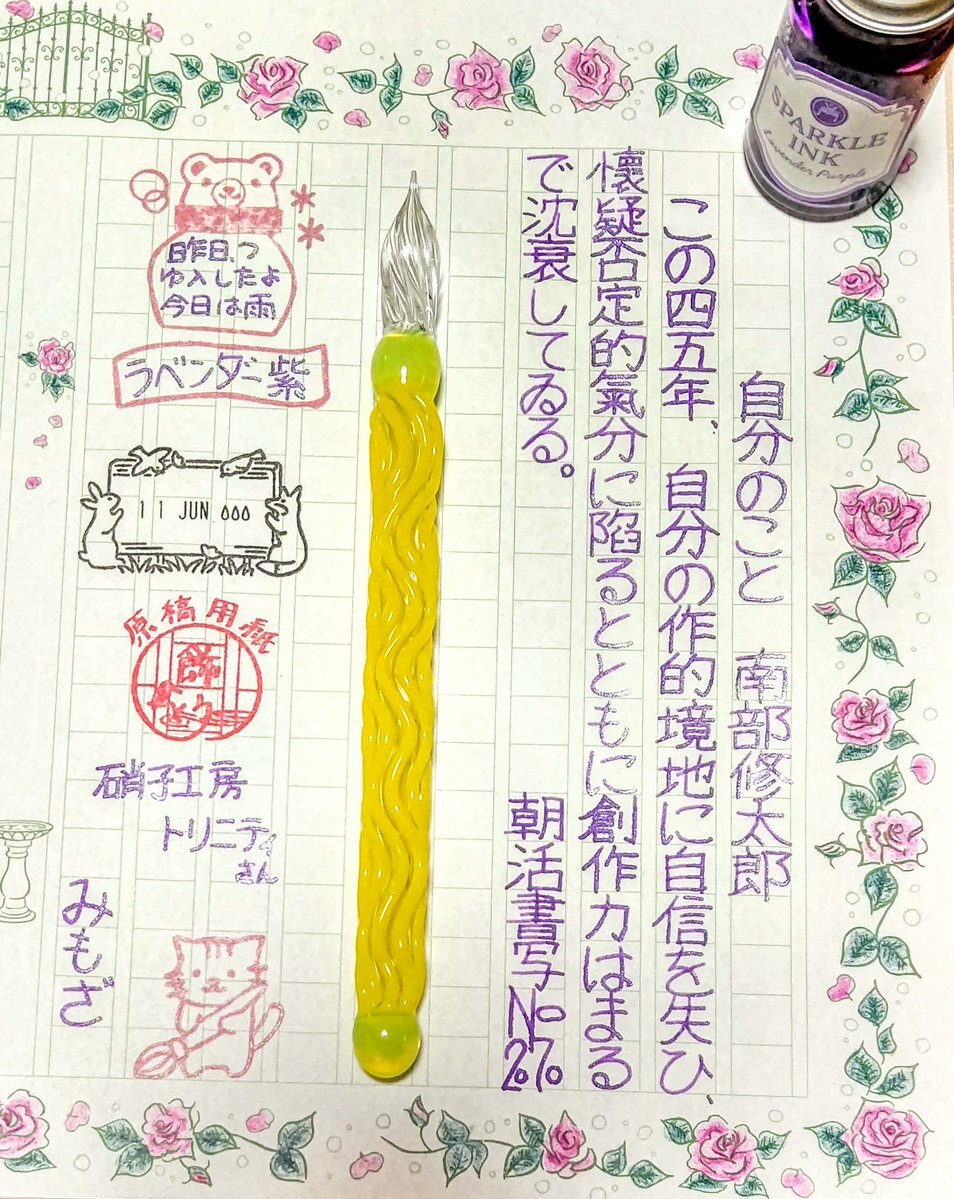 自分のこと　南部修太郎
この四五年、自分の作的境地に自信を失ひ、
懐疑否定的氣分に陷るとともに創作力はまる
で沈衰してゐる。
朝活書写No270
SPARKLE
INK
Lavender Purple
昨日、つ
ゆ入したよ
今日は雨
ラベンダー紫
11 JUN
原稿用紙
飾り
硝子工房
トリニティ
さん
みもざ